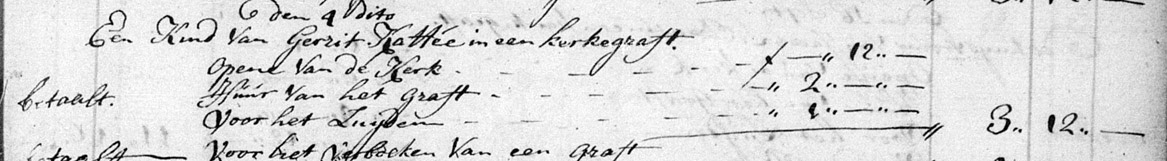 den 4 dito
Een Kind Van Gerrit Kattée in een kerkegraft.
opene Van de Kerk - - - - - ƒ — „ 12 „ —
betaalt. Húúr Van het graft - - - - - „ 2 „ — „ —
Voor het Luijden - - - - - „ 1 „ — „ — „ 3 „ 12 „ —
betaalt Voor het Van een graft